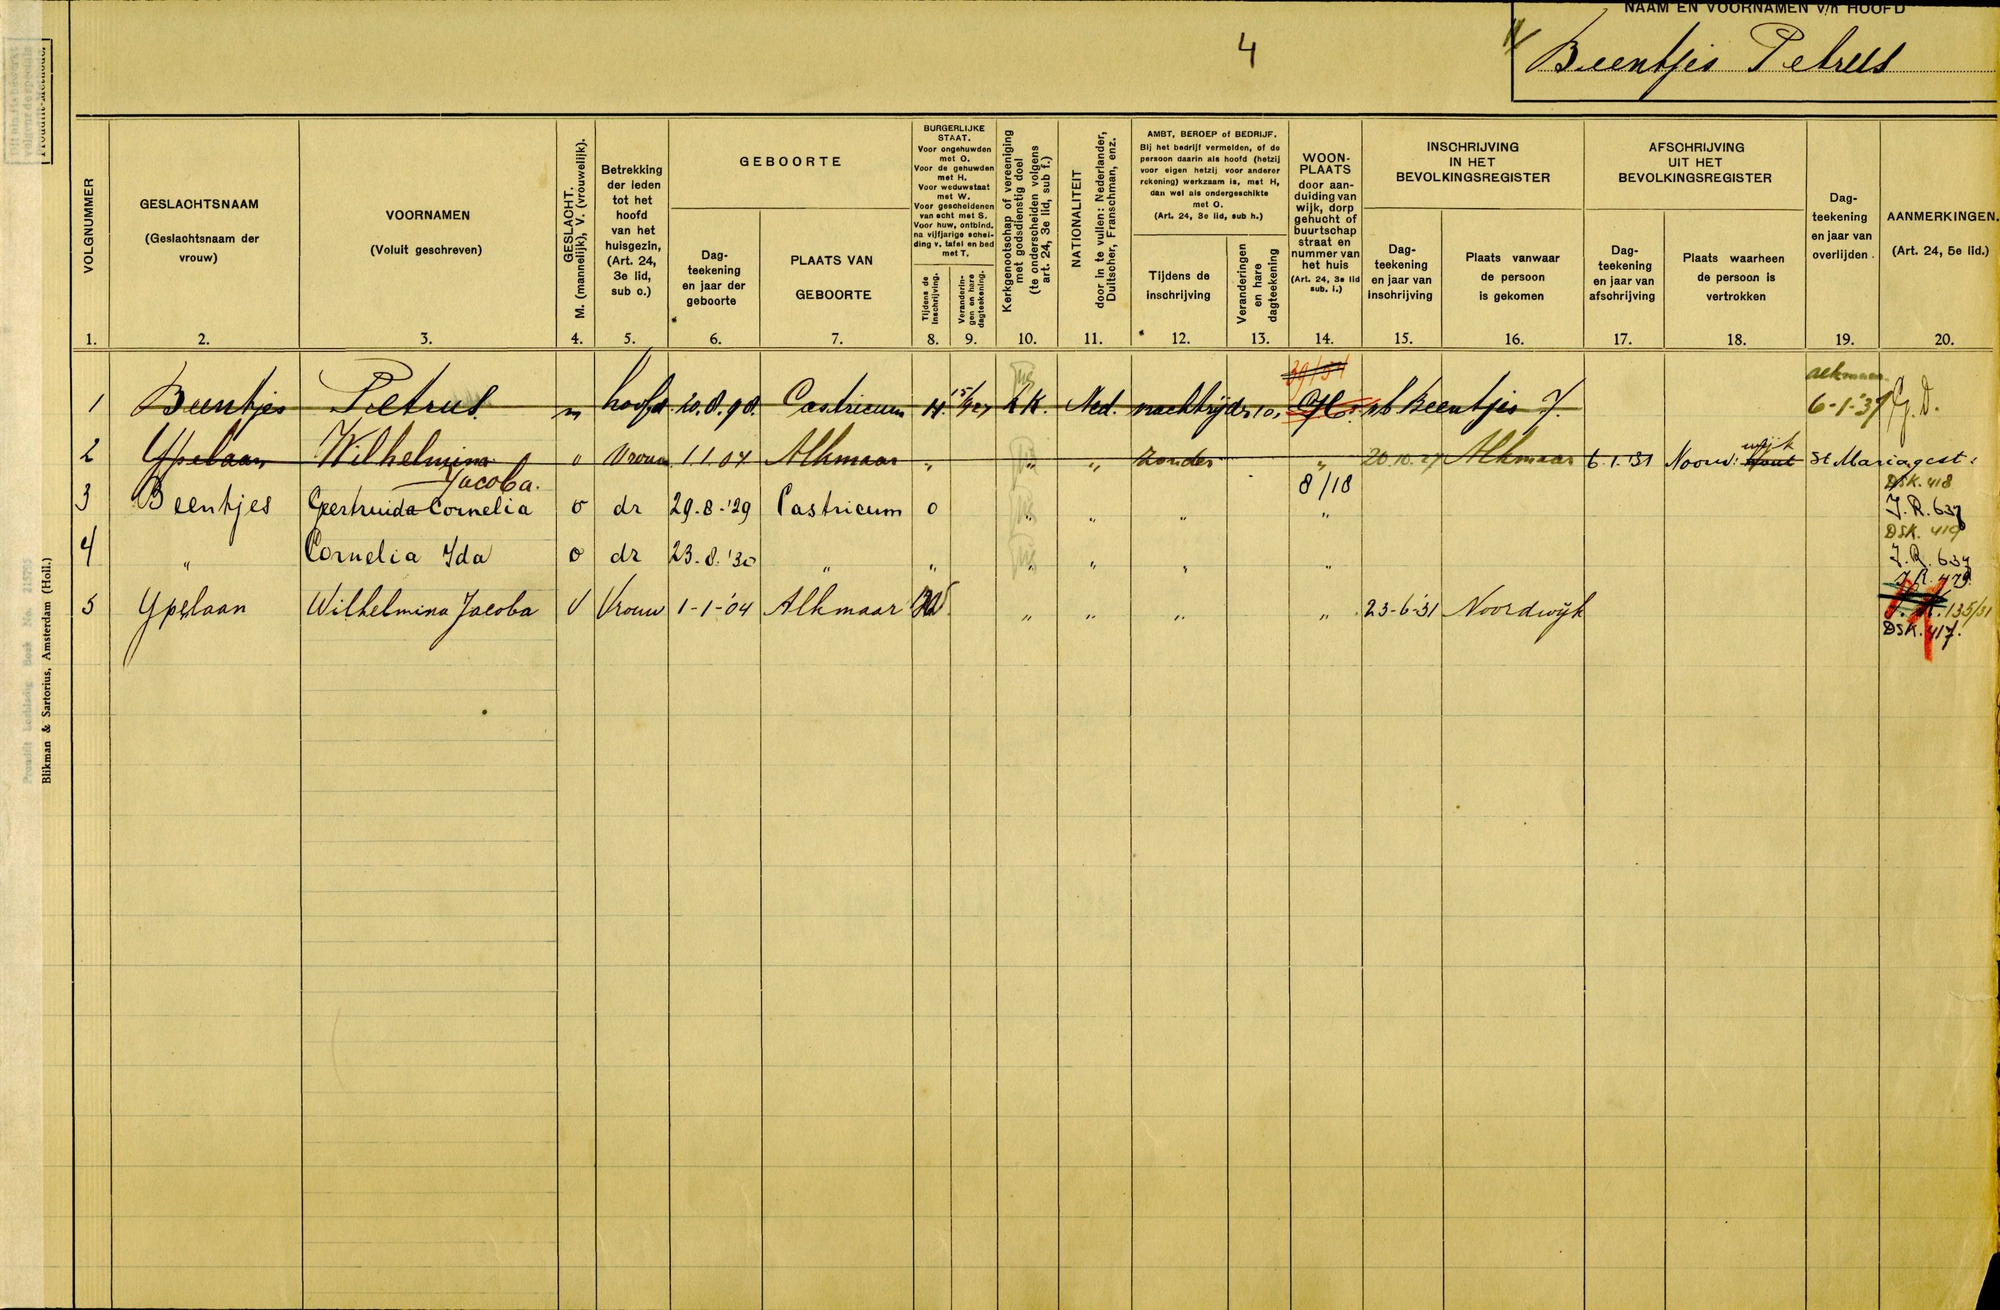 NAAM EN VOORNAMEN v/h HOOFD
4
Beentjes Petrus
VOLGNUMMER
1.
GESLACHTSNAAM
(Geslachtsnaam der
vrouw)
2.
VOORNAMEN
(Voluit geschreven)
3.
GESLACHT.
M. (mannelijk), V. (vrouwelijk).
4.
Betrekking
der leden
tot het
hoofd
van het
huisgezin,
(Art. 24,
3e lid,
sub c.)
5.
GEBOORTE
Dag-
teekening
en jaar der
geboorte
6.
PLAATS VAN
GEBOORTE
7.
BURGERLIJKE
STAAT.
Voor ongehuwden
met O.
Voor de gehuwden
met H.
Voor weduwstaat
met W.
Voor gescheidenen
van echt met S.
Voor huw, ontbind.
na vijfjarige schei-
ding v. tafel en bed
met T.
Tijdens de
inschrijving.
8.
Veranderin-
gen en hare
dagteekening.
9.
Kerkgenootschap of vereeniging
met godsdienstig doel
(te onderscheiden volgens
art. 24, 3e lid, sub f.)
10.
NATIONALITEIT
door in te vullen: Nederlander,
Duitscher, Franschman, enz.
11.
AMBT, BEROEP of BEDRIJF.
Bij het bedrijf vermelden, of de
persoon daarin als hoofd (hetzij
voor eigen hetzij voor anderer
rekening) werkzaam is, met H,
dan wel als ondergeschikte
met O.
(Art. 24, 3e lid, sub h.)
Tijdens de
inschrijving
12.
Veranderingen
en hare
dagteekening
13.
WOON-
PLAATS
door aan-
duiding van
wijk, dorp
gehucht of
buurtschap
straat en
nummer van
het huis
(Art. 24, 3e lid
sub. i.)
14.
INSCHRIJVING
IN HET
BEVOLKINGSREGISTER
Dag-
teekening
en jaar van
inschrijving
15.
Plaats vanwaar
de persoon
is gekomen
16.
AFSCHRIJVING
UIT HET
BEVOLKINGSREGISTER
Dag-
teekening
en jaar van
afschrijving
17.
Plaats waarheen
de persoon is
vertrokken
18.
Dag-
teekening
en jaar van
overlijden.
19.
AANMERKINGEN.
(Art. 24, 5e lid.)
20.
1 Beentjes Petrus m hoofd 20.8.98. Castricum H. Ned. Beentjes J. Alkmaar 6-1-'37 G. D.
2 Ypelaan Wilhelmina Jacoba. Vrouw 1.1.04 Alkmaar " " " zonder " 20.10.27 Alkmaar 6.1.31 wijk St Mariagest:
8/18
DSK. 418
3 Beentjes Geertruida Cornelia dr 29-8-'29 Castricum O " " " " J.R. 637
DSK. 419
4 " Cornelia Ida dr 23.8.'30 " " " " " J.R. 637
5 Ypelaan Wilhelmina Jacoba V Vrouw 1-1-'04 Alkmaar " " " " 23-6-'31 Noordwijk 135/31
DSK. 417.
Blikman & Sartorius, Amsterdam (Holl.)